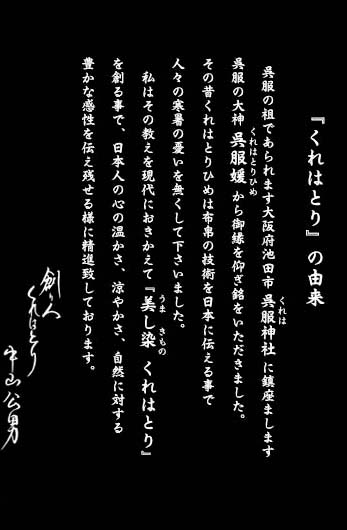 『くれはとり』の由来
呉服の祖であられます大阪府池田市 呉服神社 に鎮座まします
くれは
呉服の大神 呉服媛 から御縁を仰ぎ銘をいただきました。
くれはとりひめ
その昔くれはとりひめは布帛の技術を日本に伝える事で
人々の寒暑の憂いを無くして下さいました。
私はその教えを現代におきかえて『美し染 くれはとり』
うま きもの
を創る事で、日本人の心の温かさ、涼やかさ、自然に対する
豊かな感性を伝え残せる様に精進致しております。
創り人
くれはとり
中山公男